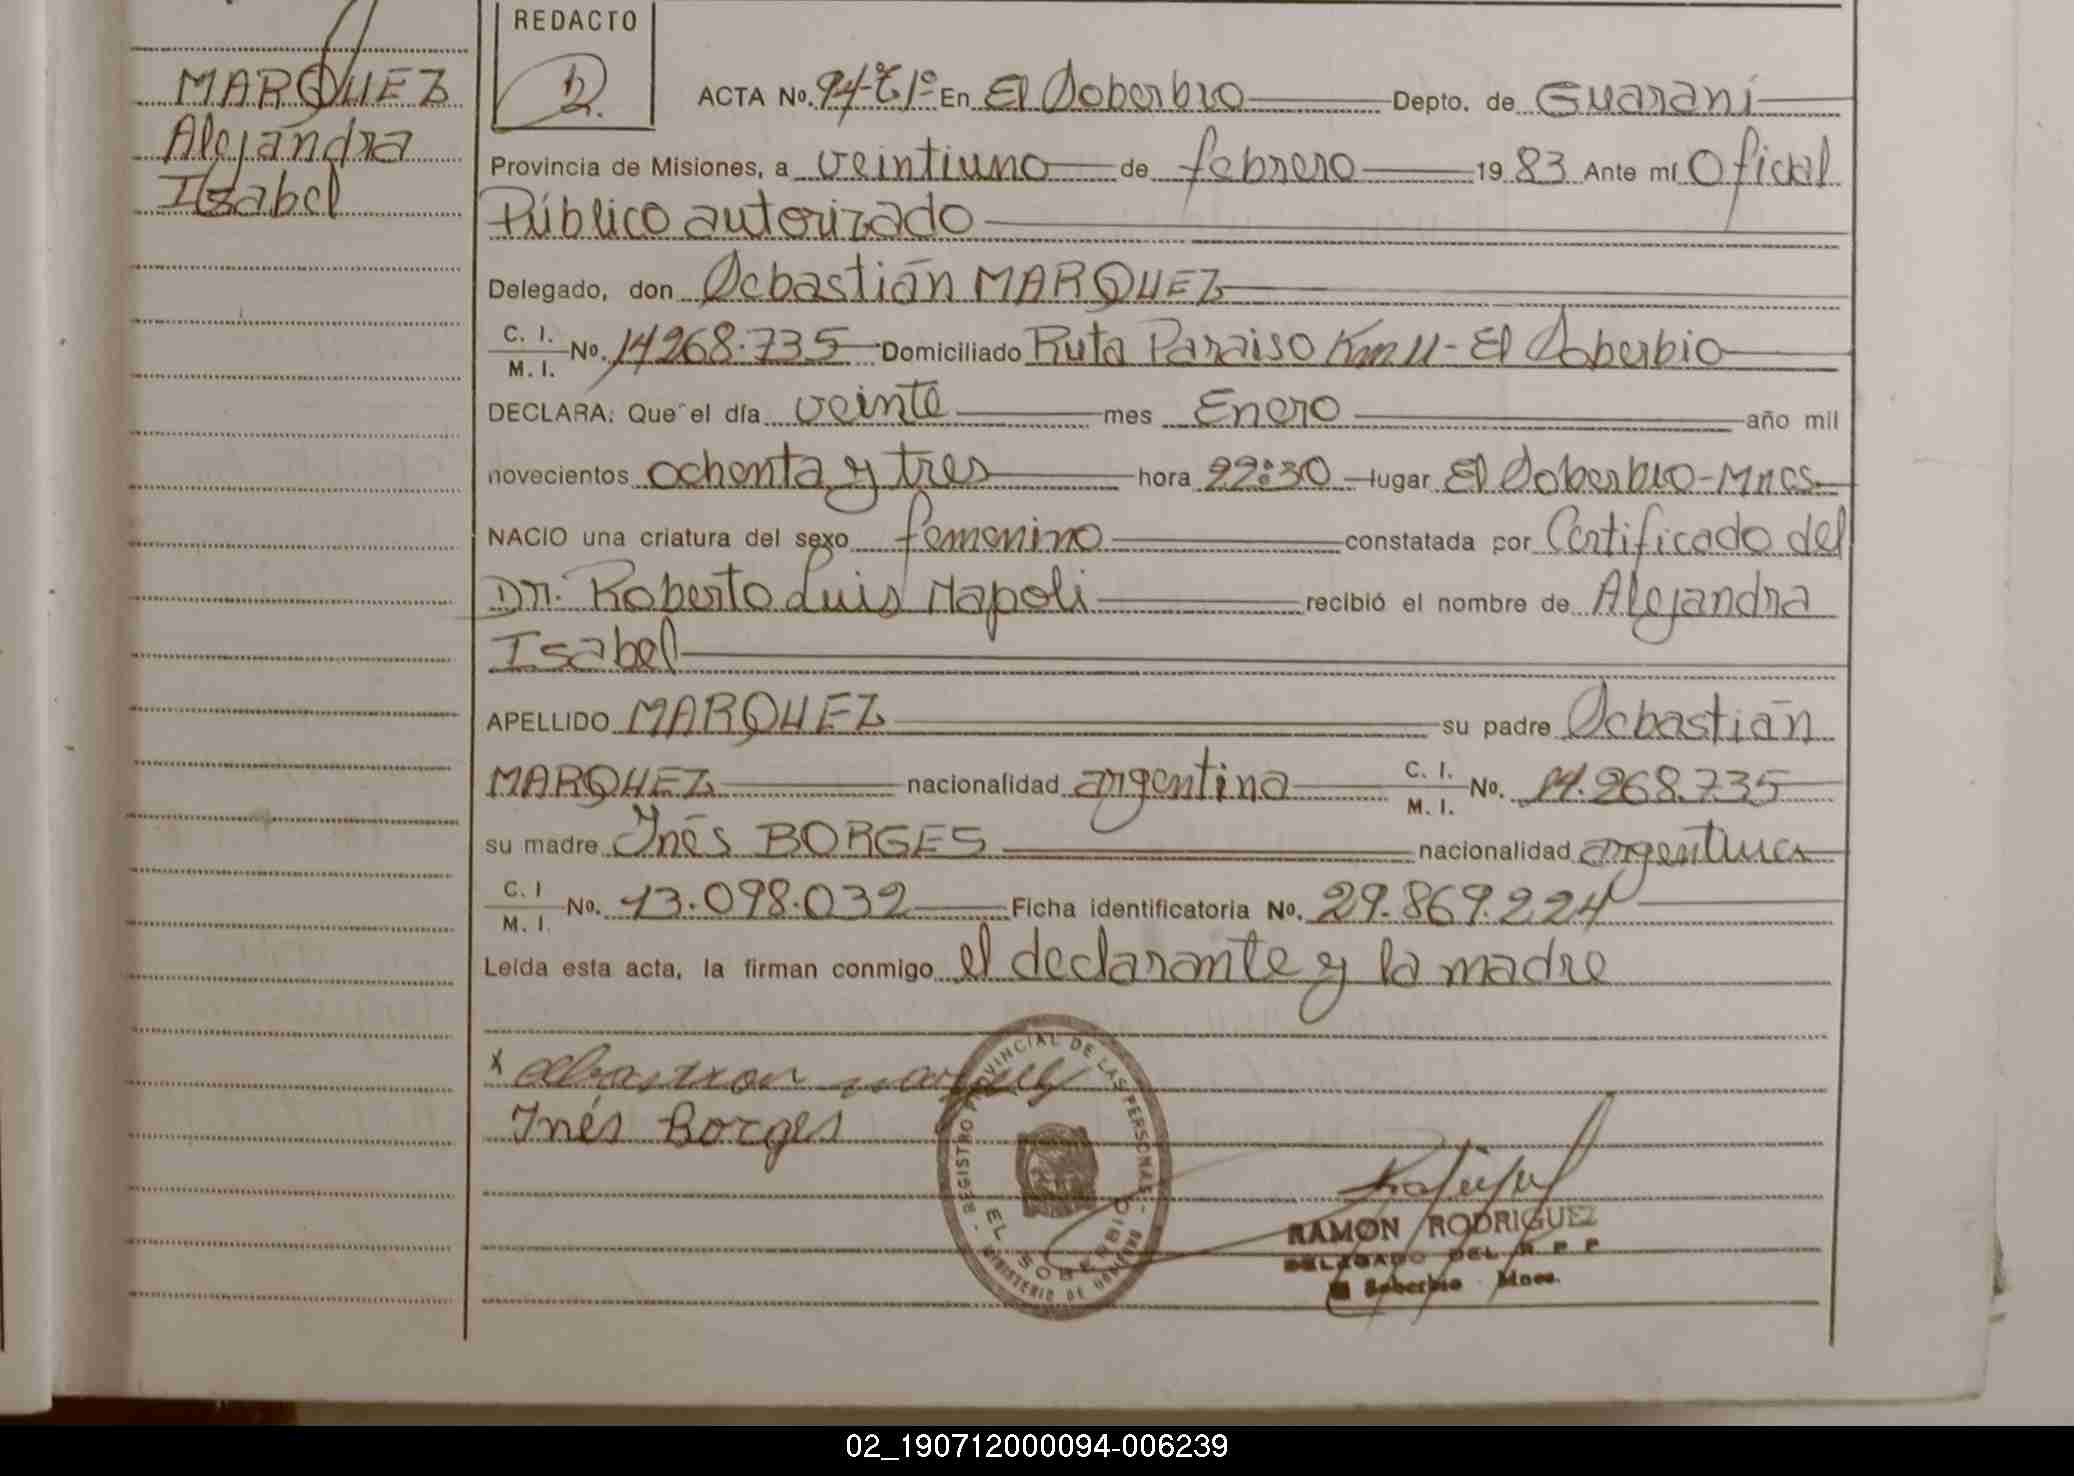 REDACTO
MARQUEZ
Alejandra
Isabel
ACTA No. 94-Tº1º En El Soberbio Depto. de Guaraní
Provincia de Misiones, a veintiuno de febrero 1983 Ante mí Oficial
Público autorizado
Delegado, don Sebastián MARQUEZ
C. I. M. I. No. 14268.735 Domiciliado Ruta Paraiso Km 11- El Soberbio
DECLARA: Que el día veinte mes Enero año mil
novecientos ochenta y tres hora 22:30 lugar El Soberbio-Mnes
NACIO una criatura del sexo femenino constatada por Certificado del
Dr. Roberto Luis Napoli recibió el nombre de Alejandra
Isabel
APELLIDO MARQUEZ su padre Sebastián
MARQUEZ nacionalidad argentina C. I. M. I. No. 14.268.735
su madre Inés BORGES nacionalidad argentina
C. I M. I. No. 13.098.032 Ficha identificatoria No. 29.869.224
Leída esta acta, la firman conmigo el declarante y la madre
x Sebastian Marquez
Inés Borges
REGISTRO PROVINCIAL DE LAS PERSONAS
EL SOBERBIO
MINISTERIO DE GOBIERNO
RAMON RODRIGUEZ
DELEGADO DEL R P P
El Soberbio Mnes.
02_190712000094-006239